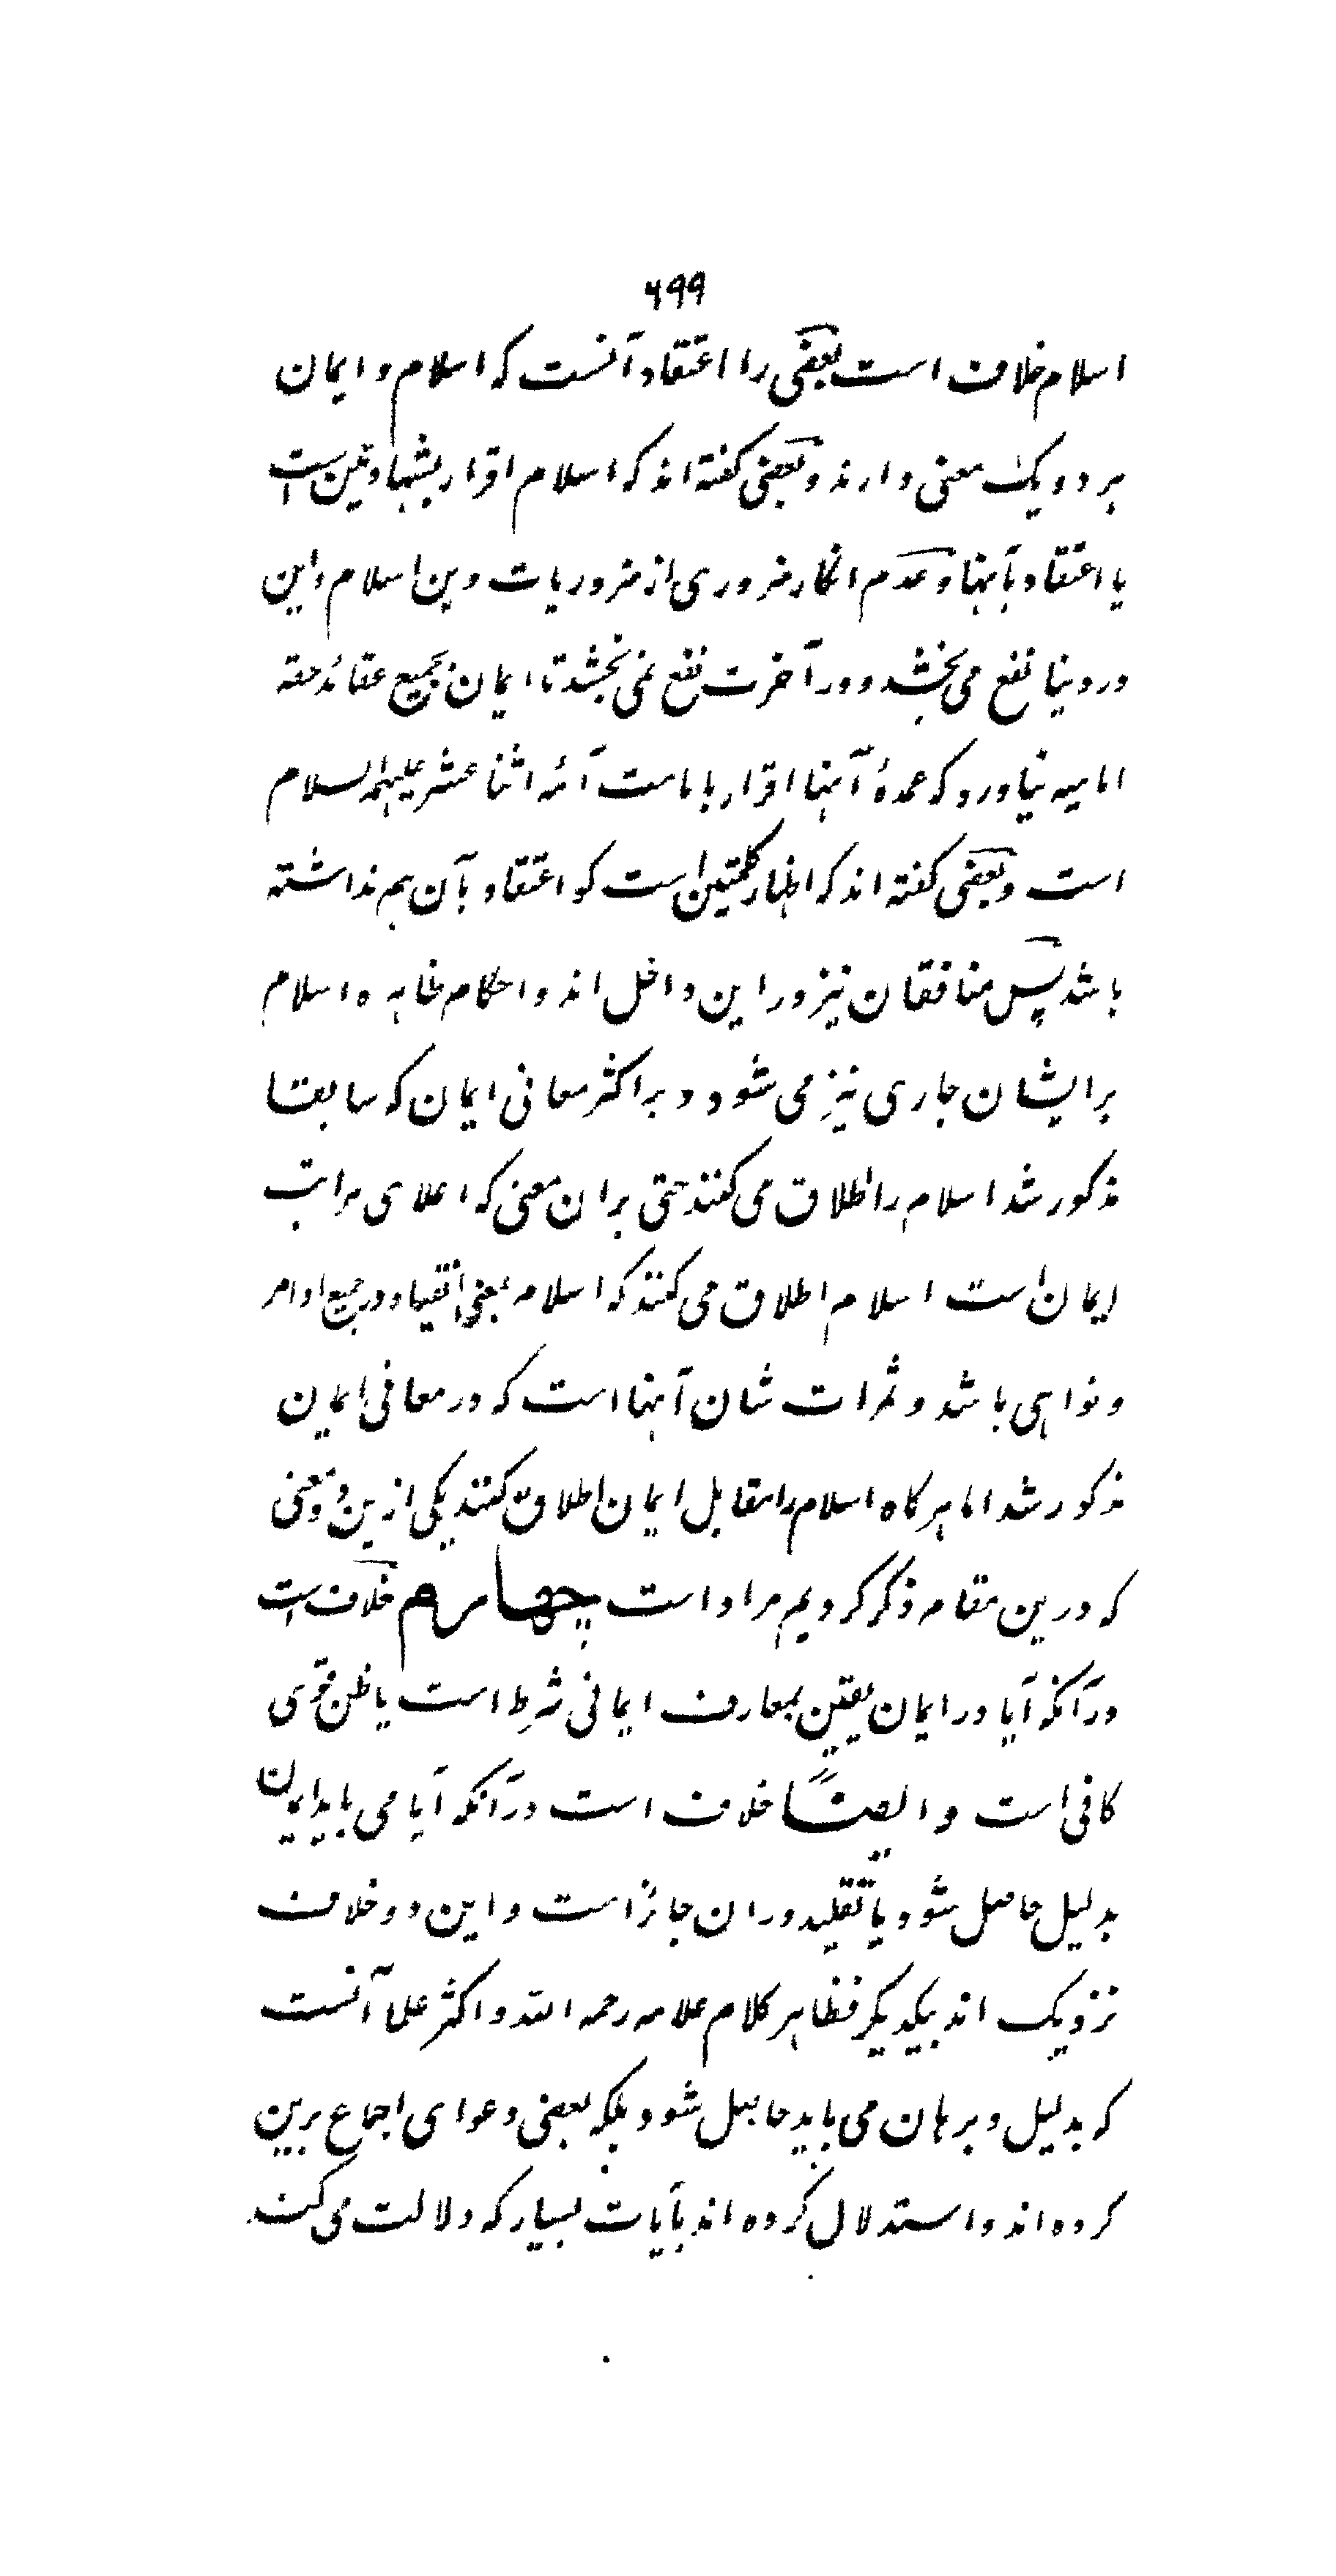 ۶۹۹
اسلام خلاف است بعضی را اعتقاد آنست که اسلام و ایمان
هر دو یک معنی دارند و بعضی گفته اند که اسلام اقرار بشهادتین است
یا اعتقاد بآنها و عدم انکار ضروری از ضروریات دین اسلام و این
در دنیا نفع می بخشد و در آخرت نفع نمی بخشد تا ایمان بجمیع عقائد حقه
امامیه نیاورد که عمدهٔ آنها اقرار بامامت آئمه اثنا عشر علیهم السلام
است و بعضی گفته اند که اظهار کلمتین است کو اعتقاد بآن هم نداشته
باشد پس منافقان نیز در این داخل اند و احکام ظاهره اسلام
بر ایشان جاری نیز می شود و بر اکثر معانی ایمان که سابقا
مذکور شد اسلام را اطلاق می کنند حتی بر ان معنی که اعلای مراتب
ایمان است اسلام اطلاق می کنند که اسلام بمعنی انقیاد در جمیع اوامر
و نواهی باشد و ثمرات شان آنها است که در معانی ایمان
مذکور شد اما هرکاه اسلام را مقابل ایمان اطلاق کنند یکی ازین دو معنی
که درین مقام ذکر کردیم مراد است چهارم خلاف است
در آنکه آیا در ایمان یقین بمعارف ایمانی شرط است یا ظن قوی
کافی است و ایضاً خلاف است در آنکه آیا می باید ایمان
بدلیل حاصل شود یا تقلید در ان جائز است و این دو خلاف
نزدیک اند بیکدیکر فظاهر کلام علامه رحمه الله و اکثر علما آنست
که بدلیل و برهان می باید حاصل شود بلکه بعضی دعوای اجماع برین
کرده اند و استدلال کرده اند بآیات بسیار که دلالت می کند